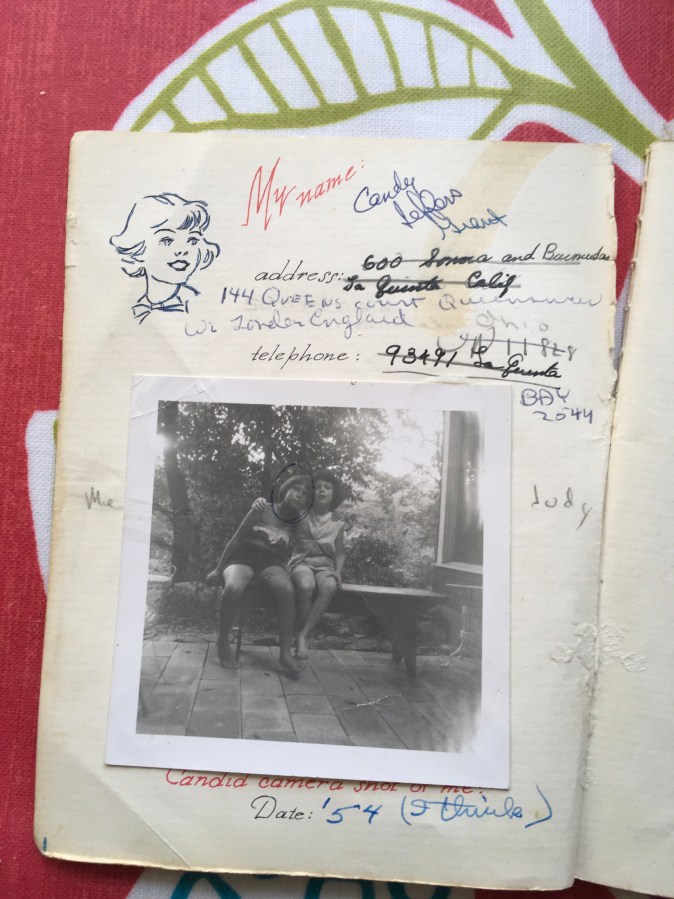 My name: Candy
Grant
address: 600 Sonora and Bermudas
La Quinta Calif
144 Queens Court Queensway
W2 London England
Ohio
telephone: 93491 La Quinta
BAY
2044
Me
Judy
Candid camera shot of me:
Date: '54 (I think)